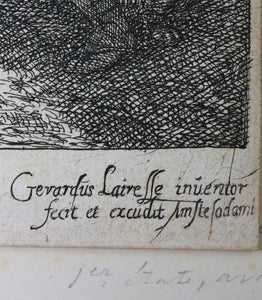 Gerardus Lairesse inventor
fecit et excudit Amstelodami
1er état,